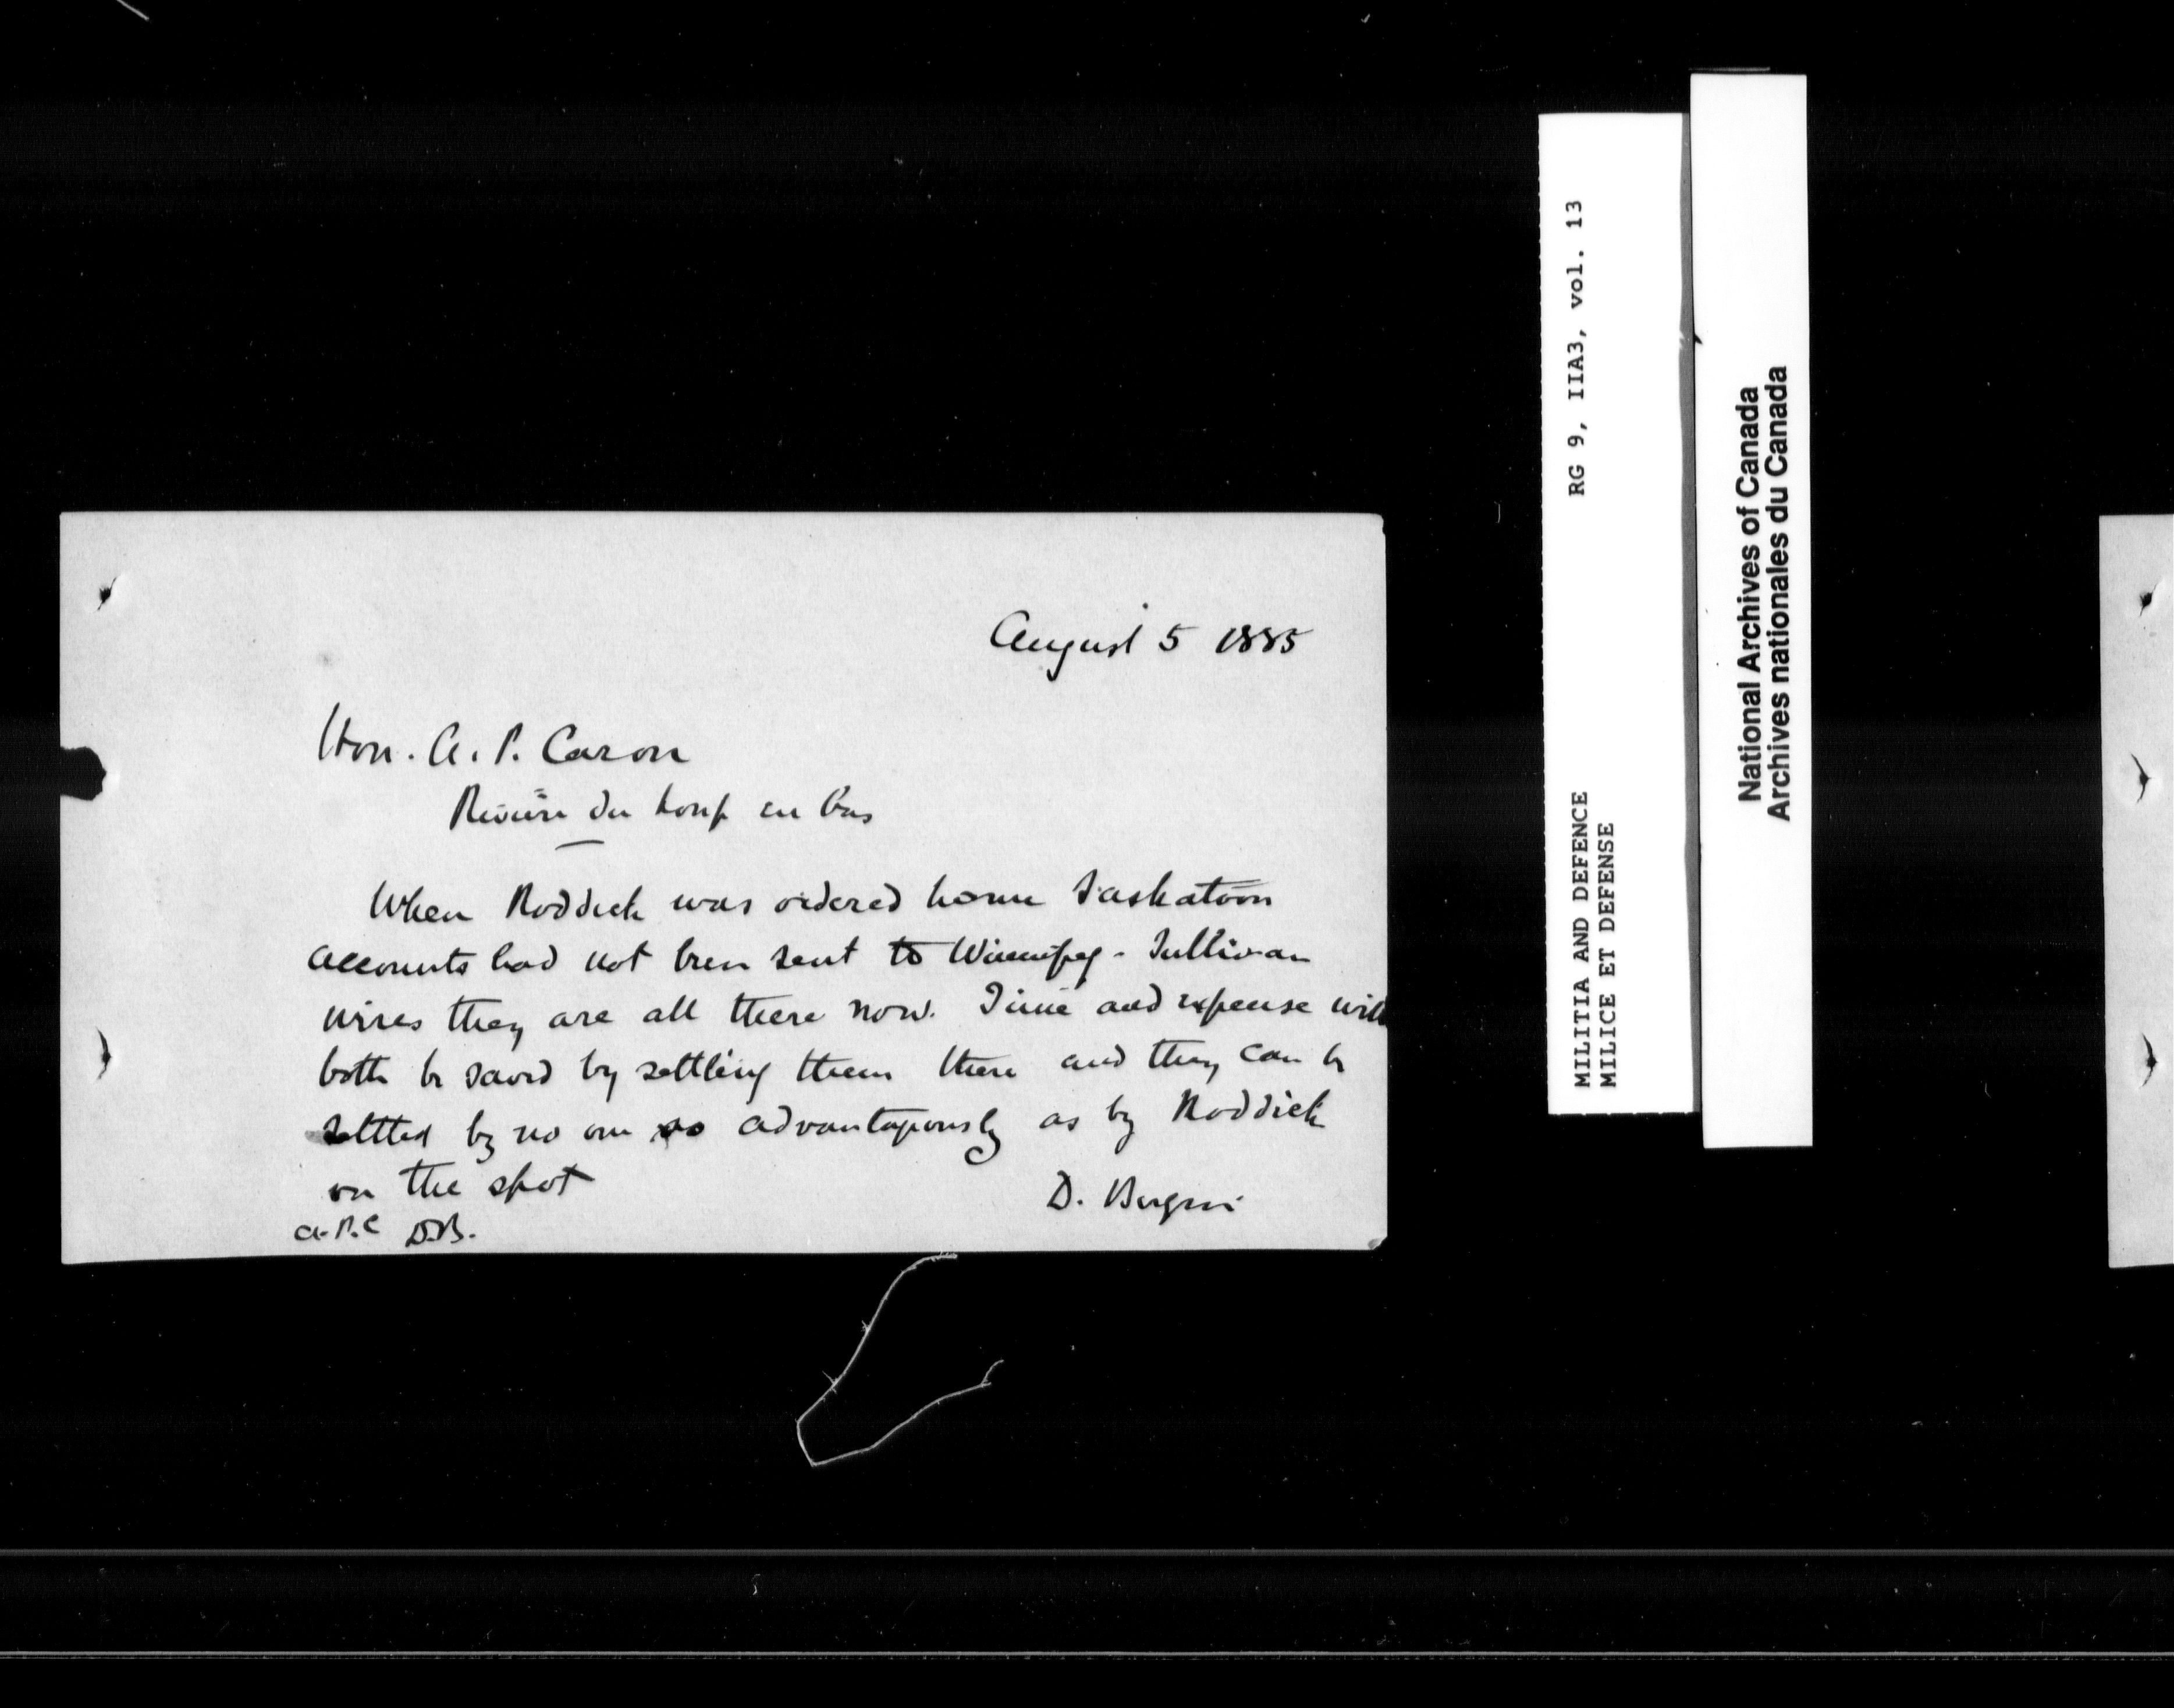 August 5 1885
Hon. A. P. Caron
Rivière du Loup en bas
When Roddick was ordered home Saskatoon
accounts had not been sent to Winnipeg - Sullivan
wires they are all there now. Time and expense will
both be saved by settling them there and they can be
settled by no one so advantageously as by Roddick
on the spot
D. Bergin
A.P.C D.B.
MILITIA AND DEFENCE RG 9, IIA3, vol. 13
MILICE ET DEFENSE
National Archives of Canada
Archives nationales du Canada